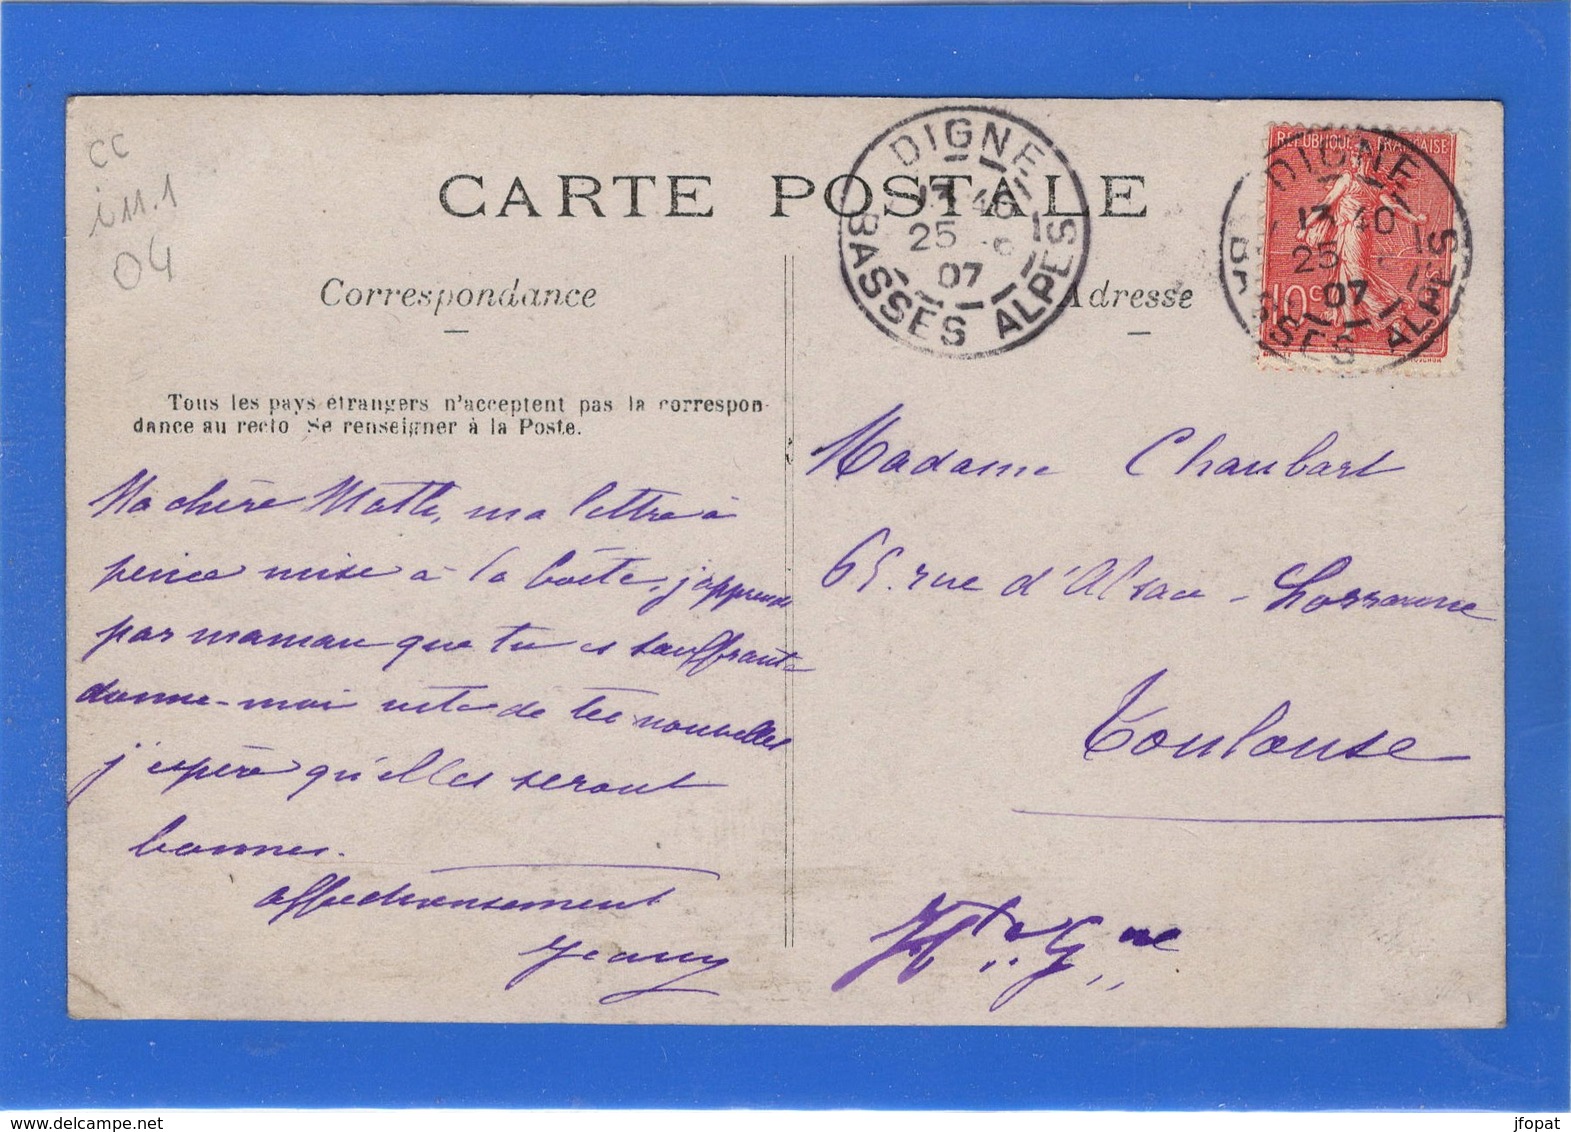 cc
i 11.1
04
CARTE POSTALE
Correspondance
Tous les pays étrangers n'acceptent pas la correspon-
dance au recto Se renseigner à la Poste.
Ma chère Math, ma lettre à
peine mise à la boîte, j'apprends
par maman que tu es souffrante
donne-moi vite de tes nouvelles
j'espère qu'elles seront
bonnes.
affectueusement
Jeany
DIGNE
13 40
25
07
BASSES ALPES
Adresse
REPUBLIQUE FRANÇAISE
10c
DIGNE
13 40
25
07
BASSES ALPES
Madame Chaubart
65. rue d'Alsace-Lorraine
Toulouse
Hte Gne
jfopat